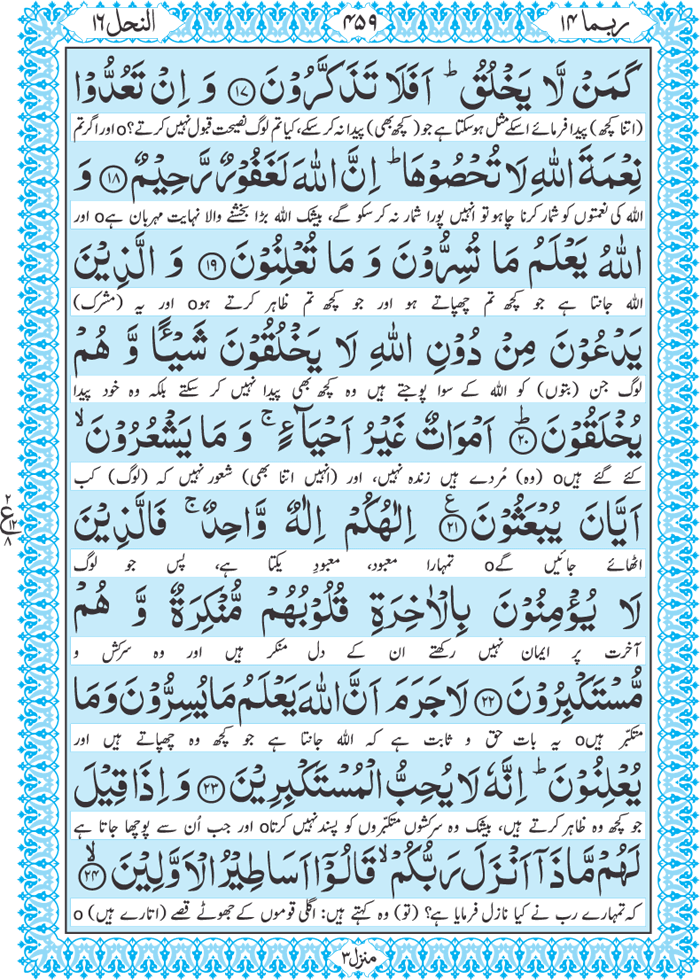 ربما ١٤
۴۵۹
النحل ١٦
كَمَنْ لَّا يَخْلُقُ ؕ اَفَلَا تَذَكَّرُوْنَ ﴿۱۷﴾ وَ اِنْ تَعُدُّوْا
(اتنا کچھ) پیدا فرمائے اسکے مثل ہو سکتا ہے جو (کچھ بھی) پیدا نہ کر سکے، کیا تم لوگ نصیحت قبول نہیں کرتے؟ o اور اگر تم
نِعْمَةَ اللّٰهِ لَا تُحْصُوْهَا ؕ اِنَّ اللّٰهَ لَغَفُوْرٌ رَّحِيْمٌ ﴿۱۸﴾ وَ
اللہ کی نعمتوں کو شمار کرنا چاہو تو انہیں پورا شمار نہ کر سکو گے، بیشک اللہ بڑا بخشنے والا نہایت مہربان ہے o اور
اللّٰهُ يَعْلَمُ مَا تُسِرُّوْنَ وَ مَا تُعْلِنُوْنَ ﴿۱۹﴾ وَ الَّذِيْنَ
اللہ جانتا ہے جو کچھ تم چھپاتے ہو اور جو کچھ تم ظاہر کرتے ہو o اور یہ (مشرک)
يَدْعُوْنَ مِنْ دُوْنِ اللّٰهِ لَا يَخْلُقُوْنَ شَيْـًٔا وَّ هُمْ
لوگ جن (بتوں) کو اللہ کے سوا پوجتے ہیں وہ کچھ بھی پیدا نہیں کر سکتے بلکہ وہ خود پیدا
يُخْلَقُوْنَ ؕ﴿۲۰﴾ اَمْوَاتٌ غَيْرُ اَحْيَآءٍ ۚ وَ مَا يَشْعُرُوْنَ ۙ
کئے گئے ہیں o (وہ) مُردے ہیں زندہ نہیں، اور (انہیں اتنا بھی) شعور نہیں کہ (لوگ) کب
اَيَّانَ يُبْعَثُوْنَ ﴿۲۱﴾ ع اِلٰهُكُمْ اِلٰهٌ وَّاحِدٌ ۚ فَالَّذِيْنَ
۲ ع ۱۲ ۸
اٹھائے جائیں گے o تمہارا معبود، معبودِ یکتا ہے، پس جو لوگ
لَا يُؤْمِنُوْنَ بِالْاٰخِرَةِ قُلُوْبُهُمْ مُّنْكِرَةٌ وَّ هُمْ
آخرت پر ایمان نہیں رکھتے ان کے دل منکر ہیں اور وہ سرکش و
مُّسْتَكْبِرُوْنَ ﴿۲۲﴾ لَا جَرَمَ اَنَّ اللّٰهَ يَعْلَمُ مَا يُسِرُّوْنَ وَ مَا
متکبّر ہیں o یہ بات حق و ثابت ہے کہ اللہ جانتا ہے جو کچھ وہ چھپاتے ہیں اور
يُعْلِنُوْنَ ؕ اِنَّهٗ لَا يُحِبُّ الْمُسْتَكْبِرِيْنَ ﴿۲۳﴾ وَ اِذَا قِيْلَ
جو کچھ وہ ظاہر کرتے ہیں، بیشک وہ سرکشوں متکبّروں کو پسند نہیں کرتا o اور جب اُن سے پوچھا جاتا ہے
لَهُمْ مَّاذَاۤ اَنْزَلَ رَبُّكُمْ ۙ قَالُوْۤا اَسَاطِيْرُ الْاَوَّلِيْنَ ۙ﴿۲۴﴾
کہ تمہارے رب نے کیا نازل فرمایا ہے؟ (تو) وہ کہتے ہیں: اگلی قوموں کے جھوٹے قصے (اتارے ہیں) o
منزل ۳